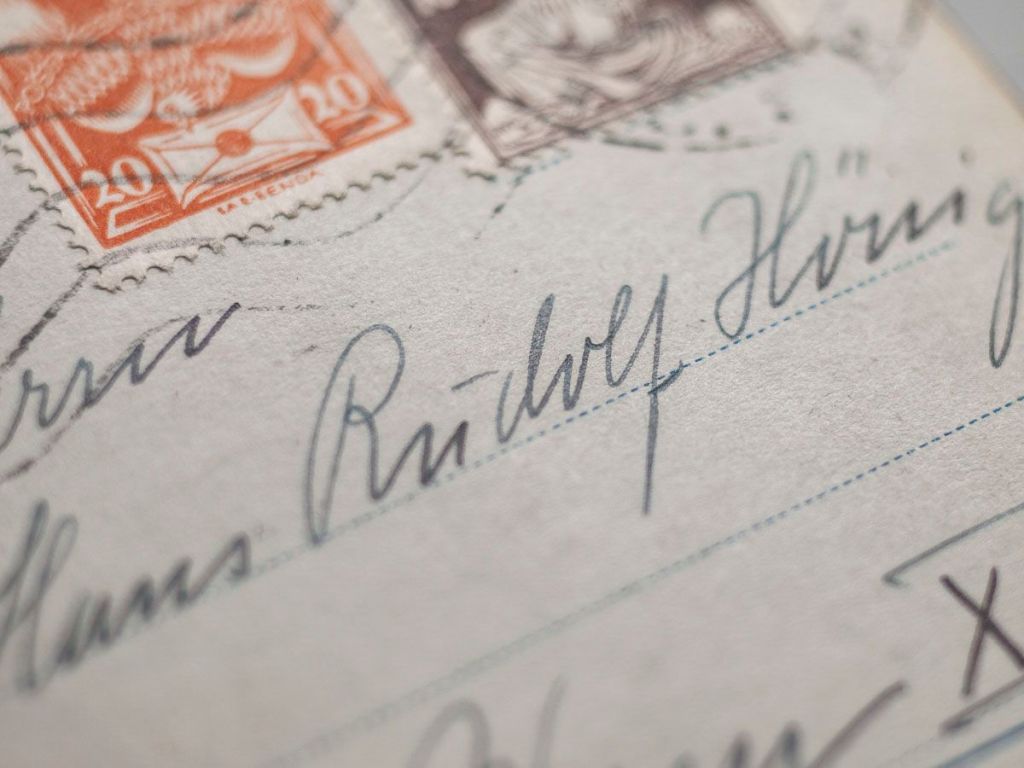 20 20
Herrn
Hans Rudolf Hönig
X